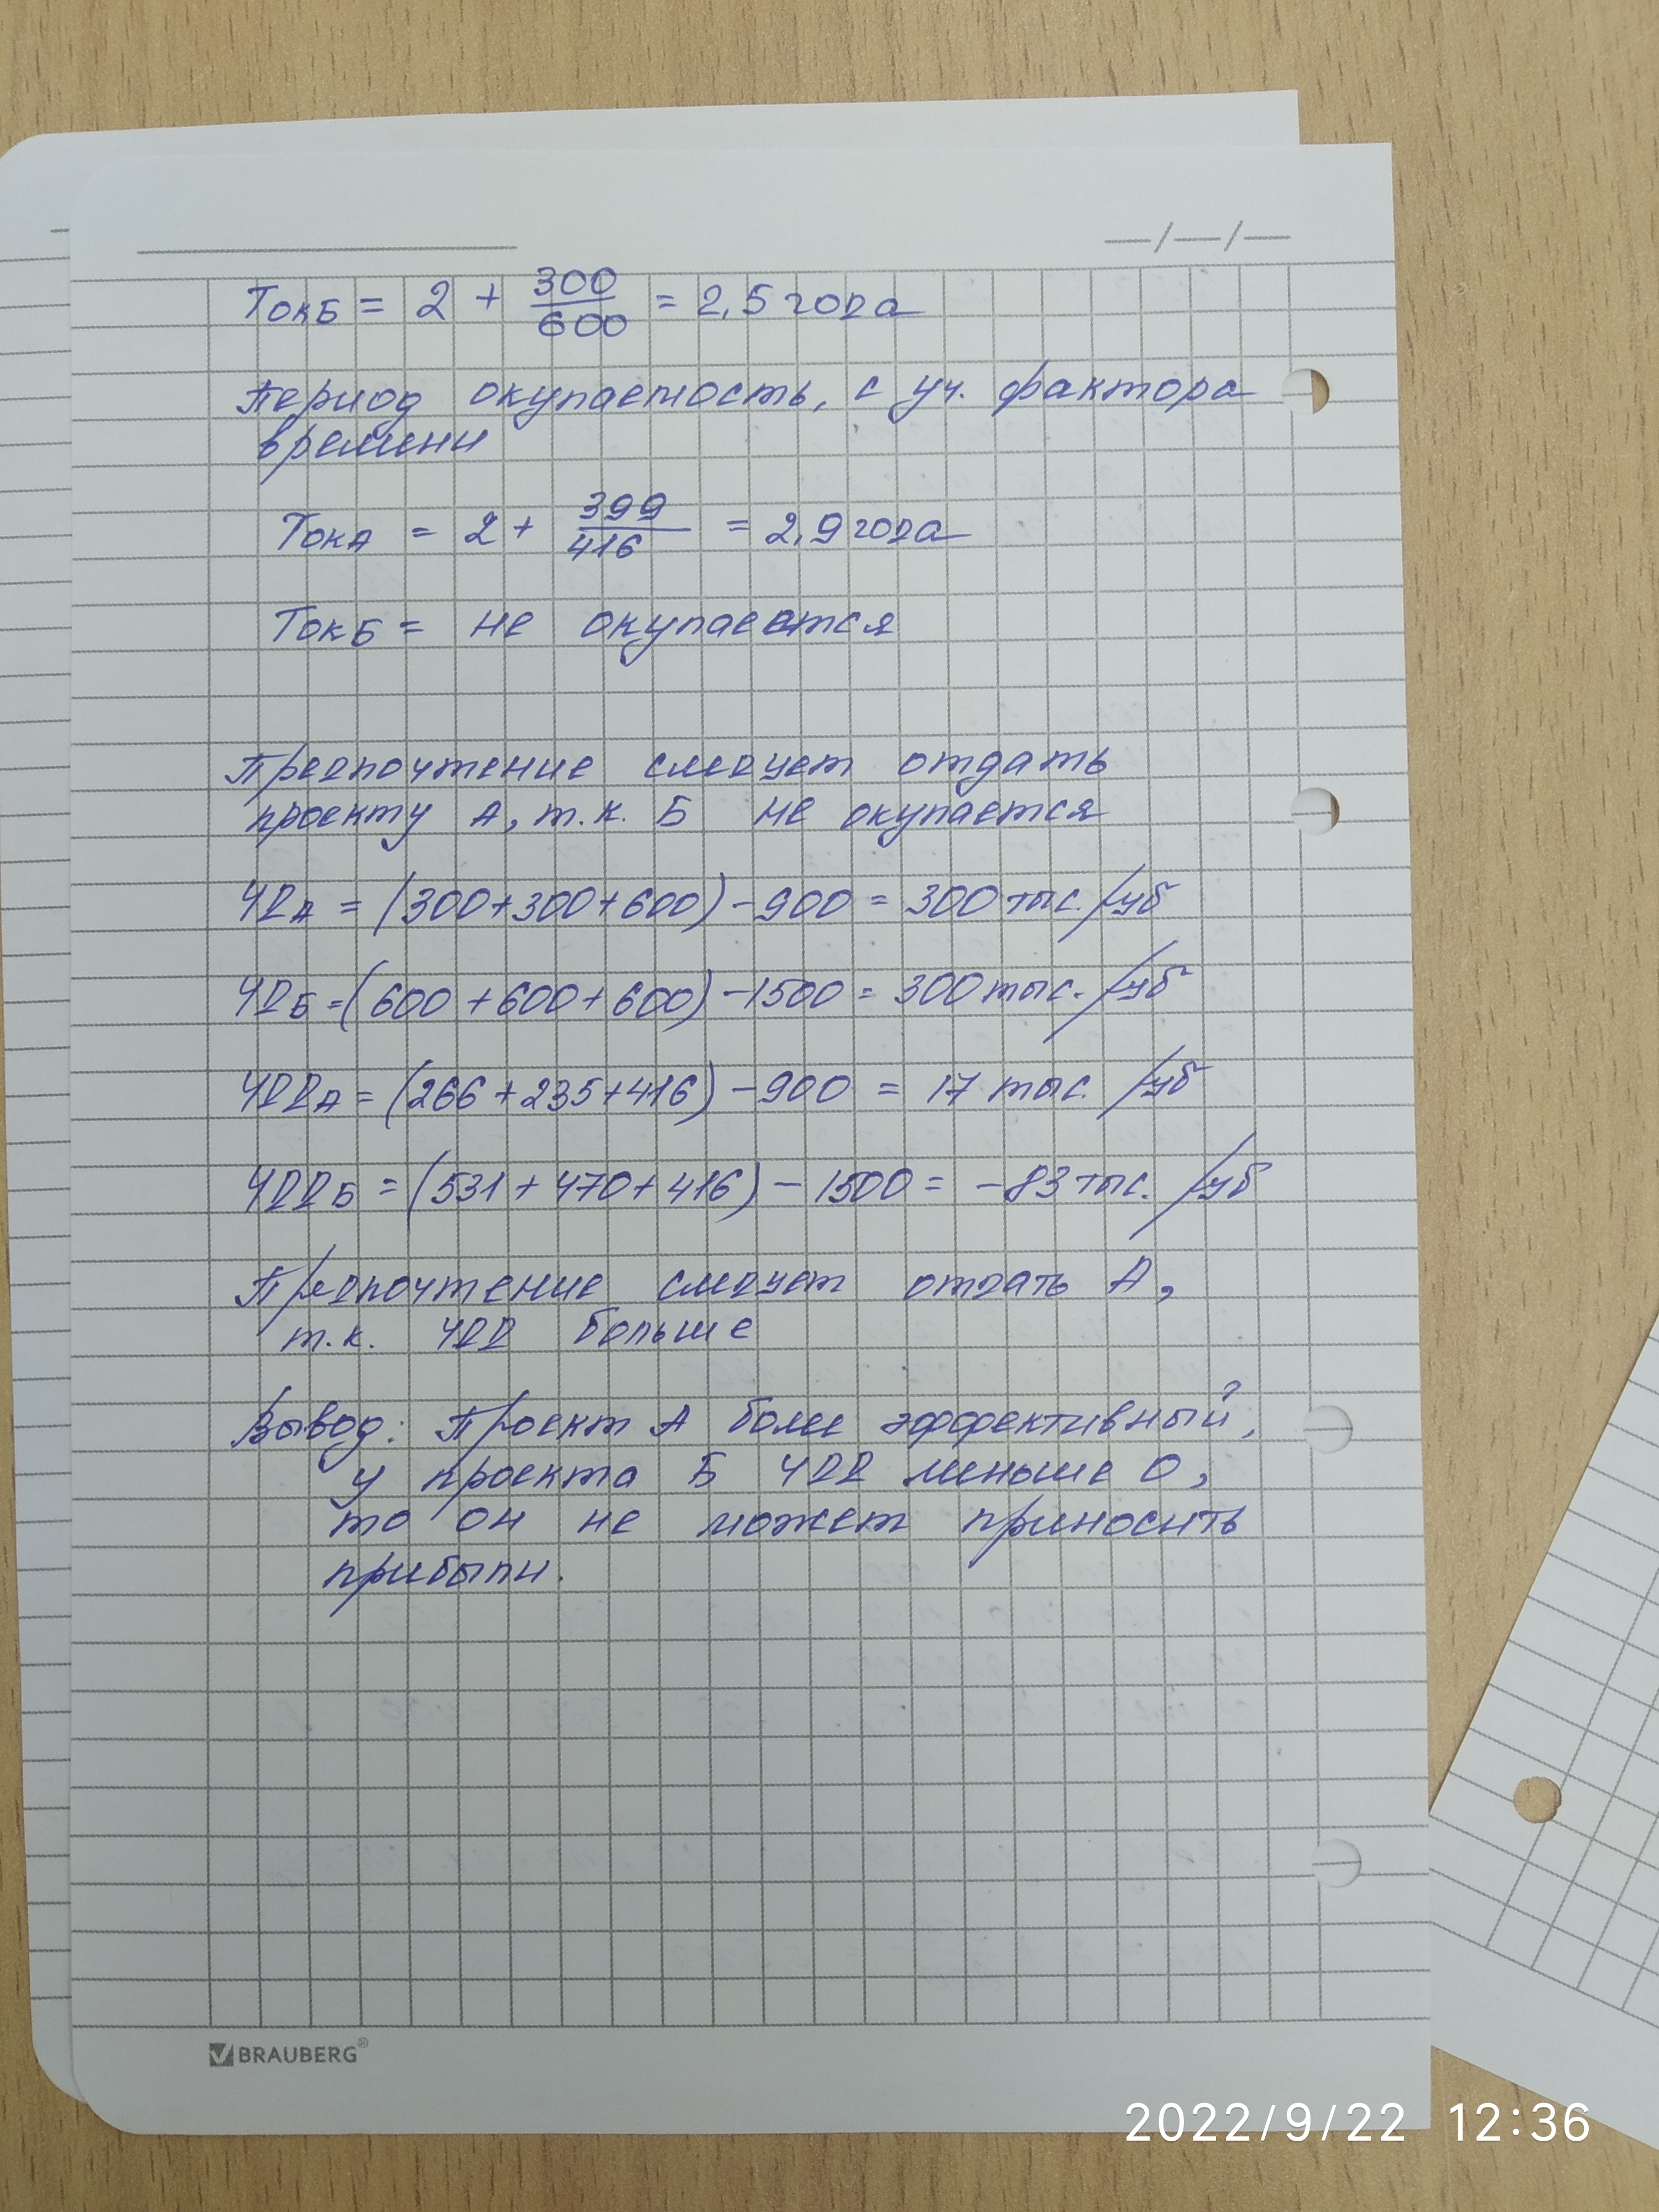 — / — / —
Ток Б = 2 + 300/600 = 2,5 года
Период окупаемость, с уч. фактора
времени
Ток А = 2 + 399/416 = 2,9 года
Ток Б = не окупаеется
Предпочтение следует отдать
проекту А, т.к. Б не окупается
ЧДА = (300+300+600) - 900 = 300 тыс. руб
ЧДБ = (600 + 600 + 600) - 1500 = 300 тыс. руб
ЧДДА = (266 + 235 + 416) - 900 = 17 тыс. руб
ЧДДБ = (531 + 470 + 416) - 1500 = -83 тыс. руб
Предпочтение следует отдать А,
т.к. ЧДД больше
Вывод: Проект А более эффективный,
у проекта Б ЧДД меньше 0,
то он не может приносить
прибыли.
BRAUBERG®
2022/9/22 12:36